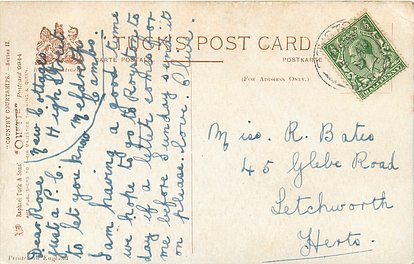 TUCK'S POST CARD
CARTE POSTALE
POSTKARTE
(FOR ADDRESS ONLY.)
"COUNTRY COURTSHIPS." Series II.
"OILETTE" Postcard 9944
Raphael Tuck & Sons'
Printed in England
New Cottages
High Street
Meldreth
Cambs.
Dear Rose
Just a P.C
to let you know
I am having a good time
we hope to go to Royston to
day if a letter comes for
me before Sunday send it
on please. love Elsie.
Miss. R. Bates
45 Glebe Road
Letchworth
Herts.